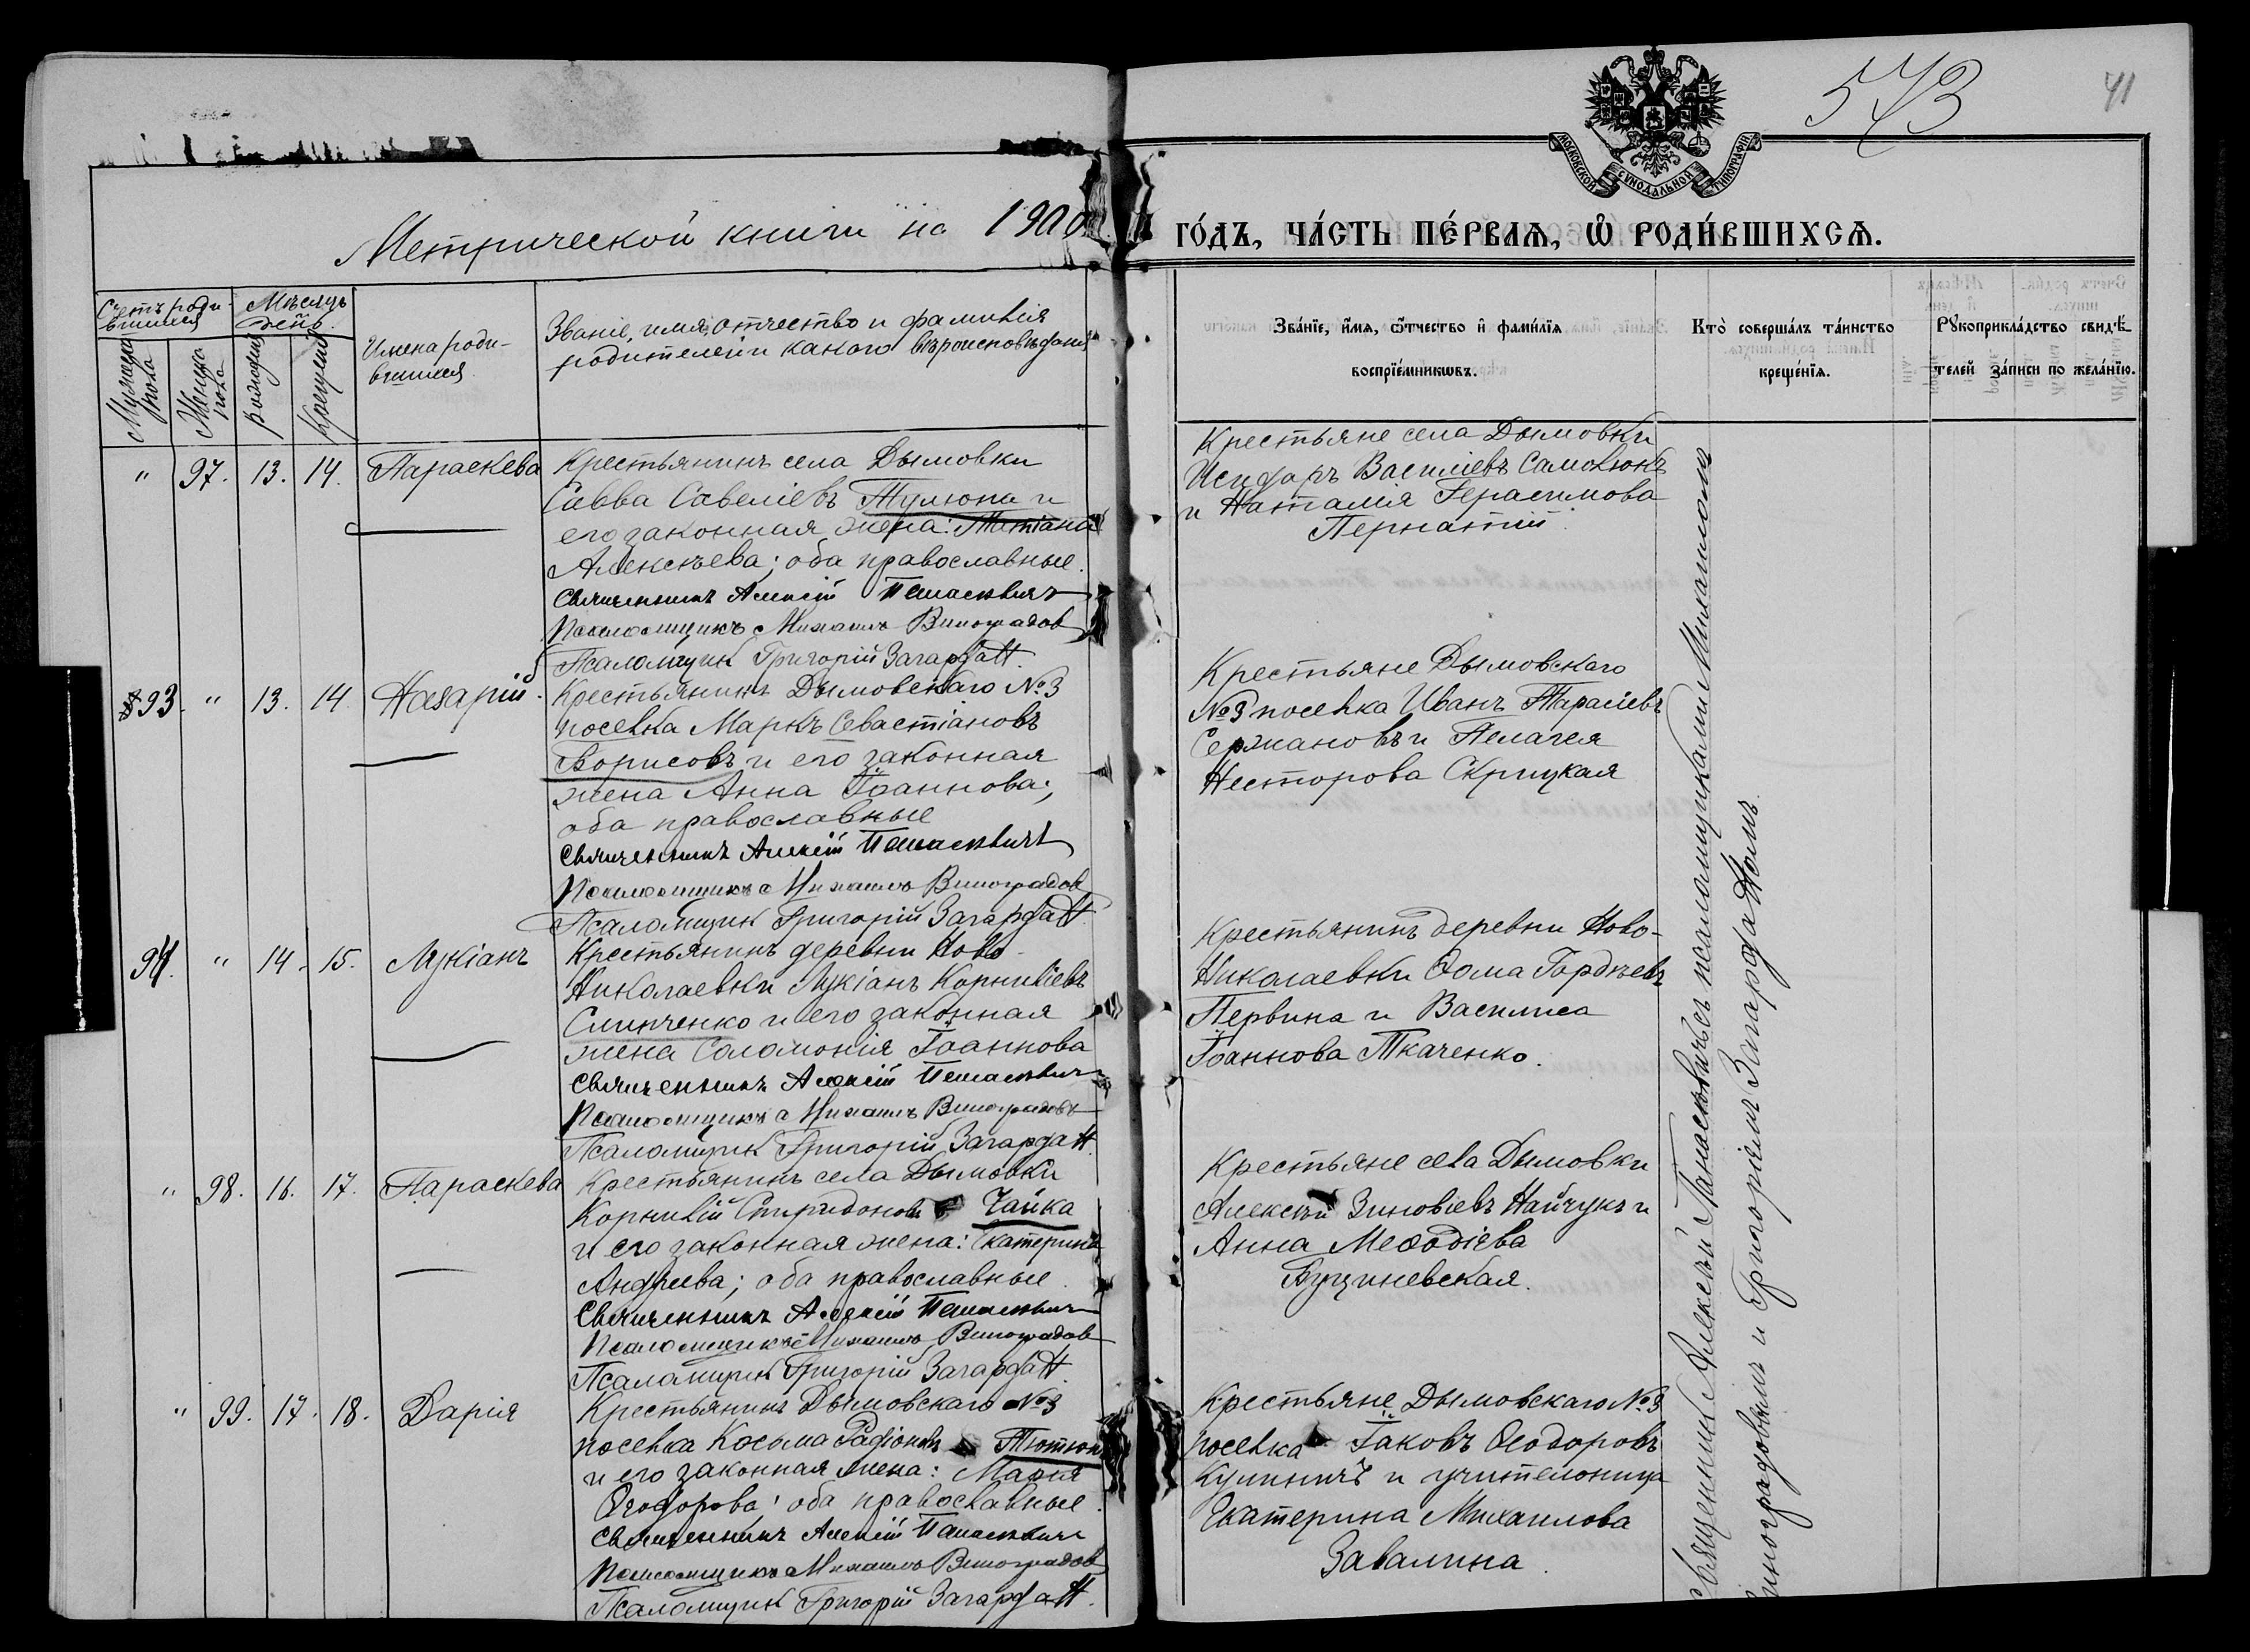 543
41
МОСКОВСКОЙ СѴНОДАЛЬНОЙ ТИПОГРАФІИ
Метрической книги на 1900
го́дъ, ча́сть пе́рваѧ, ѡ҆ роди́вшихсѧ.
Счетъ роди-
вшихся
Мѣсяцъ
день.
Мужеска
пола
Женска
пола
рожденія
крещенія
Имена роди-
вшихся
Званіе, имя, отчество и фамилія
родителей и какого вѣроисповѣданія
Зва́нїе, и҆́мѧ, ѻ҆́тчество и҆ фами́лїѧ
воспрїе́мникѡвъ.
Кто̀ соверша́лъ та́инство
креще́нїѧ.
Рꙋкоприкла́дство свидѣ́-
телей за́писи по жела́нїю.
" 97. 13. 14. Параскева
Крестьянинъ села Дымовки
Савва Савеліевъ Тулюпа и
его законная жена: Татіана
Алексѣева; оба православные.
Священникъ Алексій Панаскевичъ
Псаломщикъ Михаилъ Виноградов
Псаломщик Григорій Загард
Крестьяне села Дымовки
Исидоръ Василіевъ Самолюкъ
и Наталія Герасимова
Пернатій.
93. " 13. 14. Назарій.
Крестьянинъ Дымовскаго №3
поселка Маркъ Севастіановъ
Борисовъ и его законная
жена Анна Іоаннова;
оба православные
Священникъ Алексій Панаскевичъ
Псаломщикъ Михаилъ Виноградов
Псаломщик Григорій Загард
Крестьяне Дымовскаго
№3 поселка Иванъ Тарасіевъ
Сержановъ и Пелагея
Несторова Скрицкая
94. " 14. 15. Лукіанъ
Крестьянинъ деревни Ново-
Николаевки Лукіанъ Корниліевъ
Слинченко и его законная
жена Соломонія Іоаннова
Священникъ Алексій Панаскевичъ
Псаломщикъ Михаилъ Виноградовъ
Псаломщик Григорій Загард
Крестьянинъ деревни Ново-
Николаевки Ѳома Гордѣевъ
Первина и Василиса
Іоаннова Ткаченко.
" 98. 16. 17. Параскева
Крестьянинъ села Дымовки
Корнилій Спиридонов Чайка
и его законная жена: Екатерина
Андреева; оба православные.
Священникъ Алексій Панаскевичъ
Псаломщикъ Михаилъ Виноградов
Псаломщик Григорій Загард
Крестьяне села Дымовки
Алексѣй Зиновіевъ Найчукъ и
Анна Меѳодіева
Буциневская.
" 99. 17. 18. Дарія
Крестьянинъ Дымовскаго №3
поселка Косьма Радіоновъ Тютюн
и его законная жена: Марія
Ѳеодорова; оба православные.
Священникъ Алексій Панаскевичъ
Псаломщикъ Михаилъ Виноградов
Псаломщик Григорій Загард
Крестьяне Дымовскаго №3
поселка Іаковъ Ѳеодоровъ
Кулиничъ и учительница
Екатерина Михаилова
Завалина.
Священник Алексѣй Панаскевичъ съ псаломщиками Михаиломъ
Виноградовымъ и Григоріемъ Загард